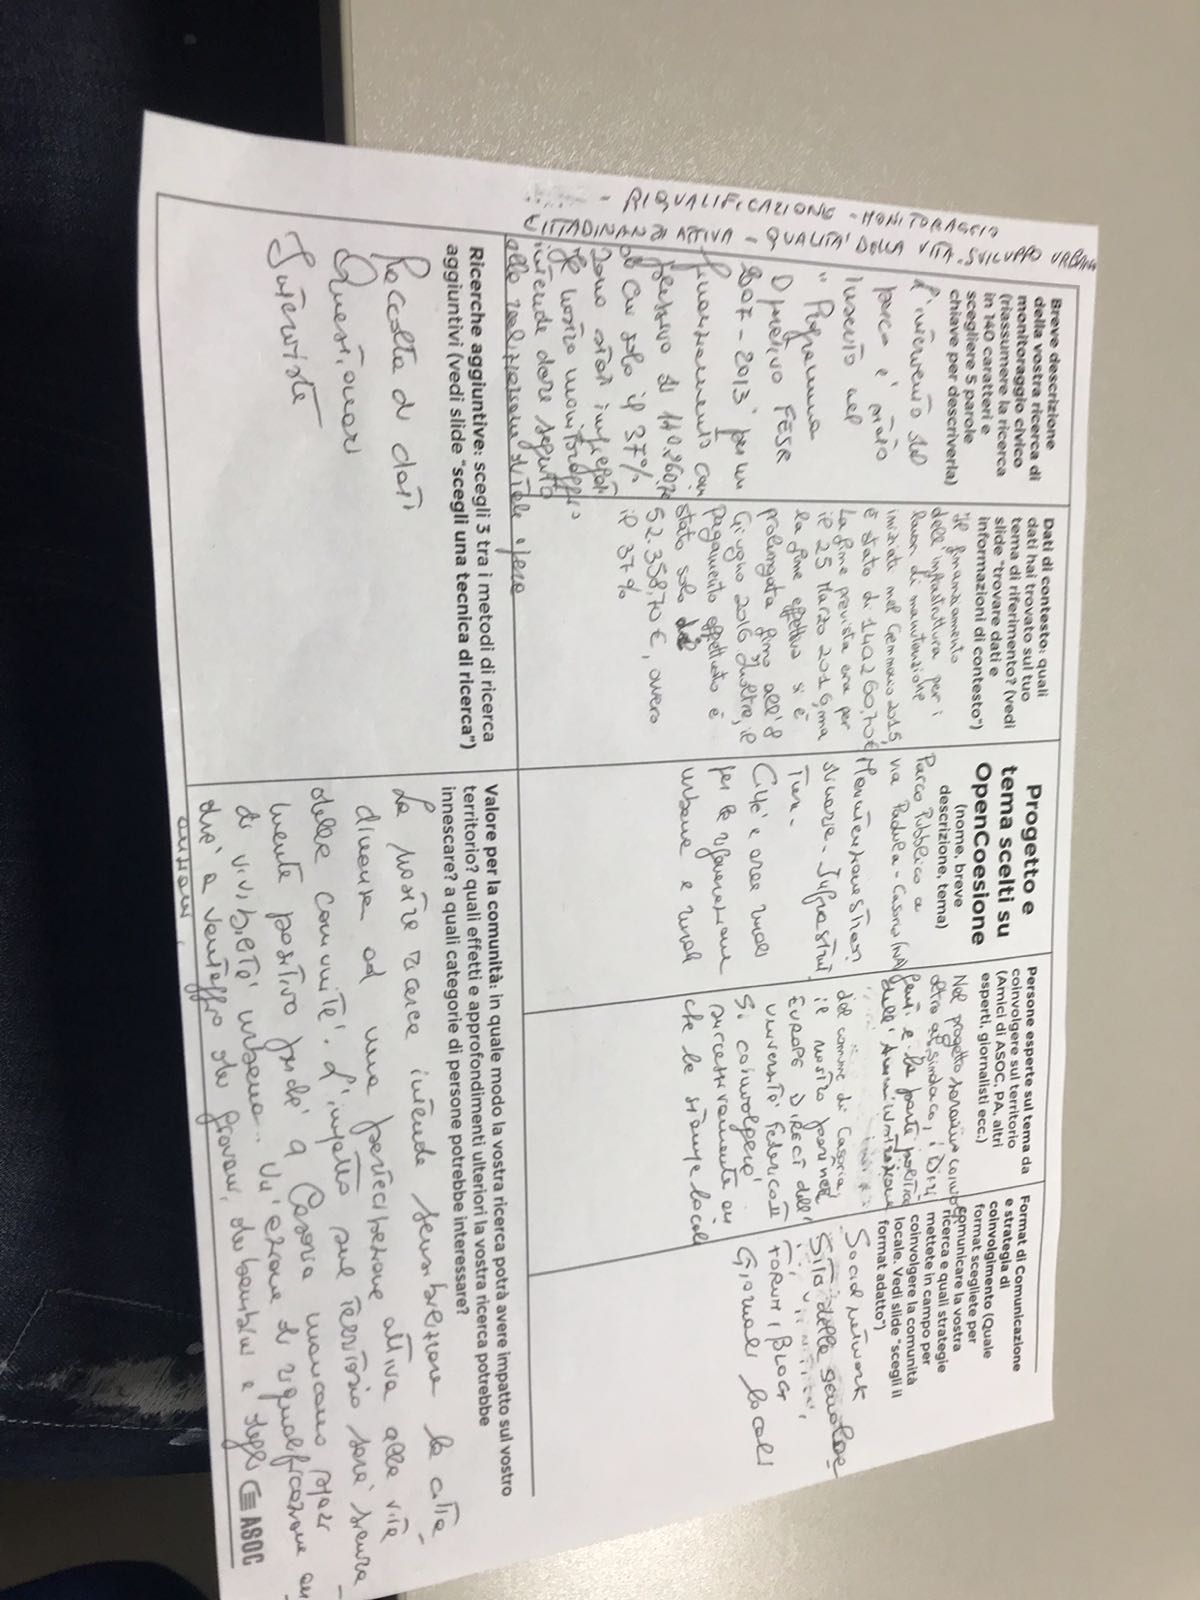 - RIQUALIFICAZIONE - MONITORAGGIO
CITTADINANZA ATTIVA - QUALITA' DELLA VITA - SVILUPPO URBANO
Breve descrizione
della vostra ricerca di
monitoraggio civico
(riassumere la ricerca
in 140 caratteri e
scegliere 5 parole
chiave per descriverla)
L'intervento sul
parco è stato
inserito nel
"Programma
Operativo FESR
2007-2013" per un
finanziamento com
plessivo di
di cui solo il 37%
sono stati impiegati
Il nostro monitoraggio
intende dare seguito
alla realizzazione di tale opera
Dati di contesto: quali
dati hai trovato sul tuo
tema di riferimento? (vedi
slide "trovare dati e
informazioni di contesto")
Il finanziamento
dell'infrastruttura per i
lavori di manutenzione
iniziata nel Gennaio 2015,
è stato di 140260,70€
La fine prevista era per
il 25 Marzo 2016, ma
la fine effettiva si è
prolungata fino all'8
Giugno 2016. Inoltre, il
pagamento effettuato è
stato solo di
52.358,70 €, ovvero
il 37%
Progetto e
tema scelti su
OpenCoesione
(nome, breve
descrizione, tema)
Parco Pubblico a
via Padula - Casoria (NA)
Manutenzione straor
dinaria - Infrastrut
ture -
Città e aree rurali
per la rigenerazione
urbana e rurale
Persone esperte sul tema da
coinvolgere sul territorio
(Amici di ASOC, PA, altri
esperti, giornalisti ecc.)
Nel progetto saranno coinvolti
oltre al sindaco, i Diri
genti e la parte politica
dell'Amministrazione
del comune di Casoria,
il nostro partner
EUROPE DIRECT dell'
università Federico II
Si coinvolgerà
successivamente an
che la stampa locale
Format di Comunicazione
e strategia di
coinvolgimento (Quale
format scegliete per
comunicare la vostra
ricerca e quali strategie
mettete in campo per
coinvolgere la comunità
locale. Vedi slide "scegli il
format adatto")
Social network
Sito della scuola
FORUM / BLOG
Giornali locali
Ricerche aggiuntive: scegli 3 tra i metodi di ricerca
aggiuntivi (vedi slide "scegli una tecnica di ricerca")
Raccolta di dati
Questionari
Interviste
Valore per la comunità: in quale modo la vostra ricerca potrà avere impatto sul vostro
territorio? quali effetti e approfondimenti ulteriori la vostra ricerca potrebbe
innescare? a quali categorie di persone potrebbe interessare?
La nostra ricerca intende sensibilizzare la citta-
dinanza ad una partecipazione attiva alla vita
della comunità. L'impatto sul territorio sarà sicura-
mente positivo perché a Casoria mancano spazi
di vivibilità urbana. Un'azione di riqualificazione an
drà a vantaggio dei giovani, dei bambini e degli
anziani.
ASOC